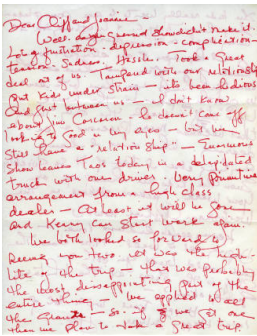 Dear Clifford and Jeannie —
Well, the show didn't make it.
Lots frustration - depression - complication -
tension. Sadness. Hassles. Took a great
deal out of us. Tampered with our relationship
Put kids under strain - it's been hideous
And just between us - I don't know
about Jim Corcoran - he doesn't come off
looking too good in my eyes - but we
still have a "relationship" - Enormous
Show leaves Taos today in a delapidated
truck with one driver. Very primitive
arrangement from a high class
dealer - At least it will be gone
and Kenny can start work again.
We both looked so forward to
seeing you two. It was the high-
lite of the trip - that was probably
the most disappointing part of the
entire thing - We applied to all
the Grants - so if we get one
then we plan to take a great trip